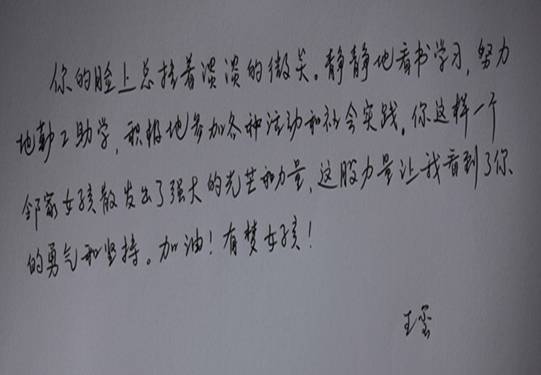 你的脸上总挂着淡淡的微笑。静静地看书学习,努力
地勤工助学,积极地参加各种活动和社会实践。你这样一个
邻家女孩散发出了强大的光芒和力量,这股力量让我看到了你
的勇气和坚持。加油!有梦女孩!
王